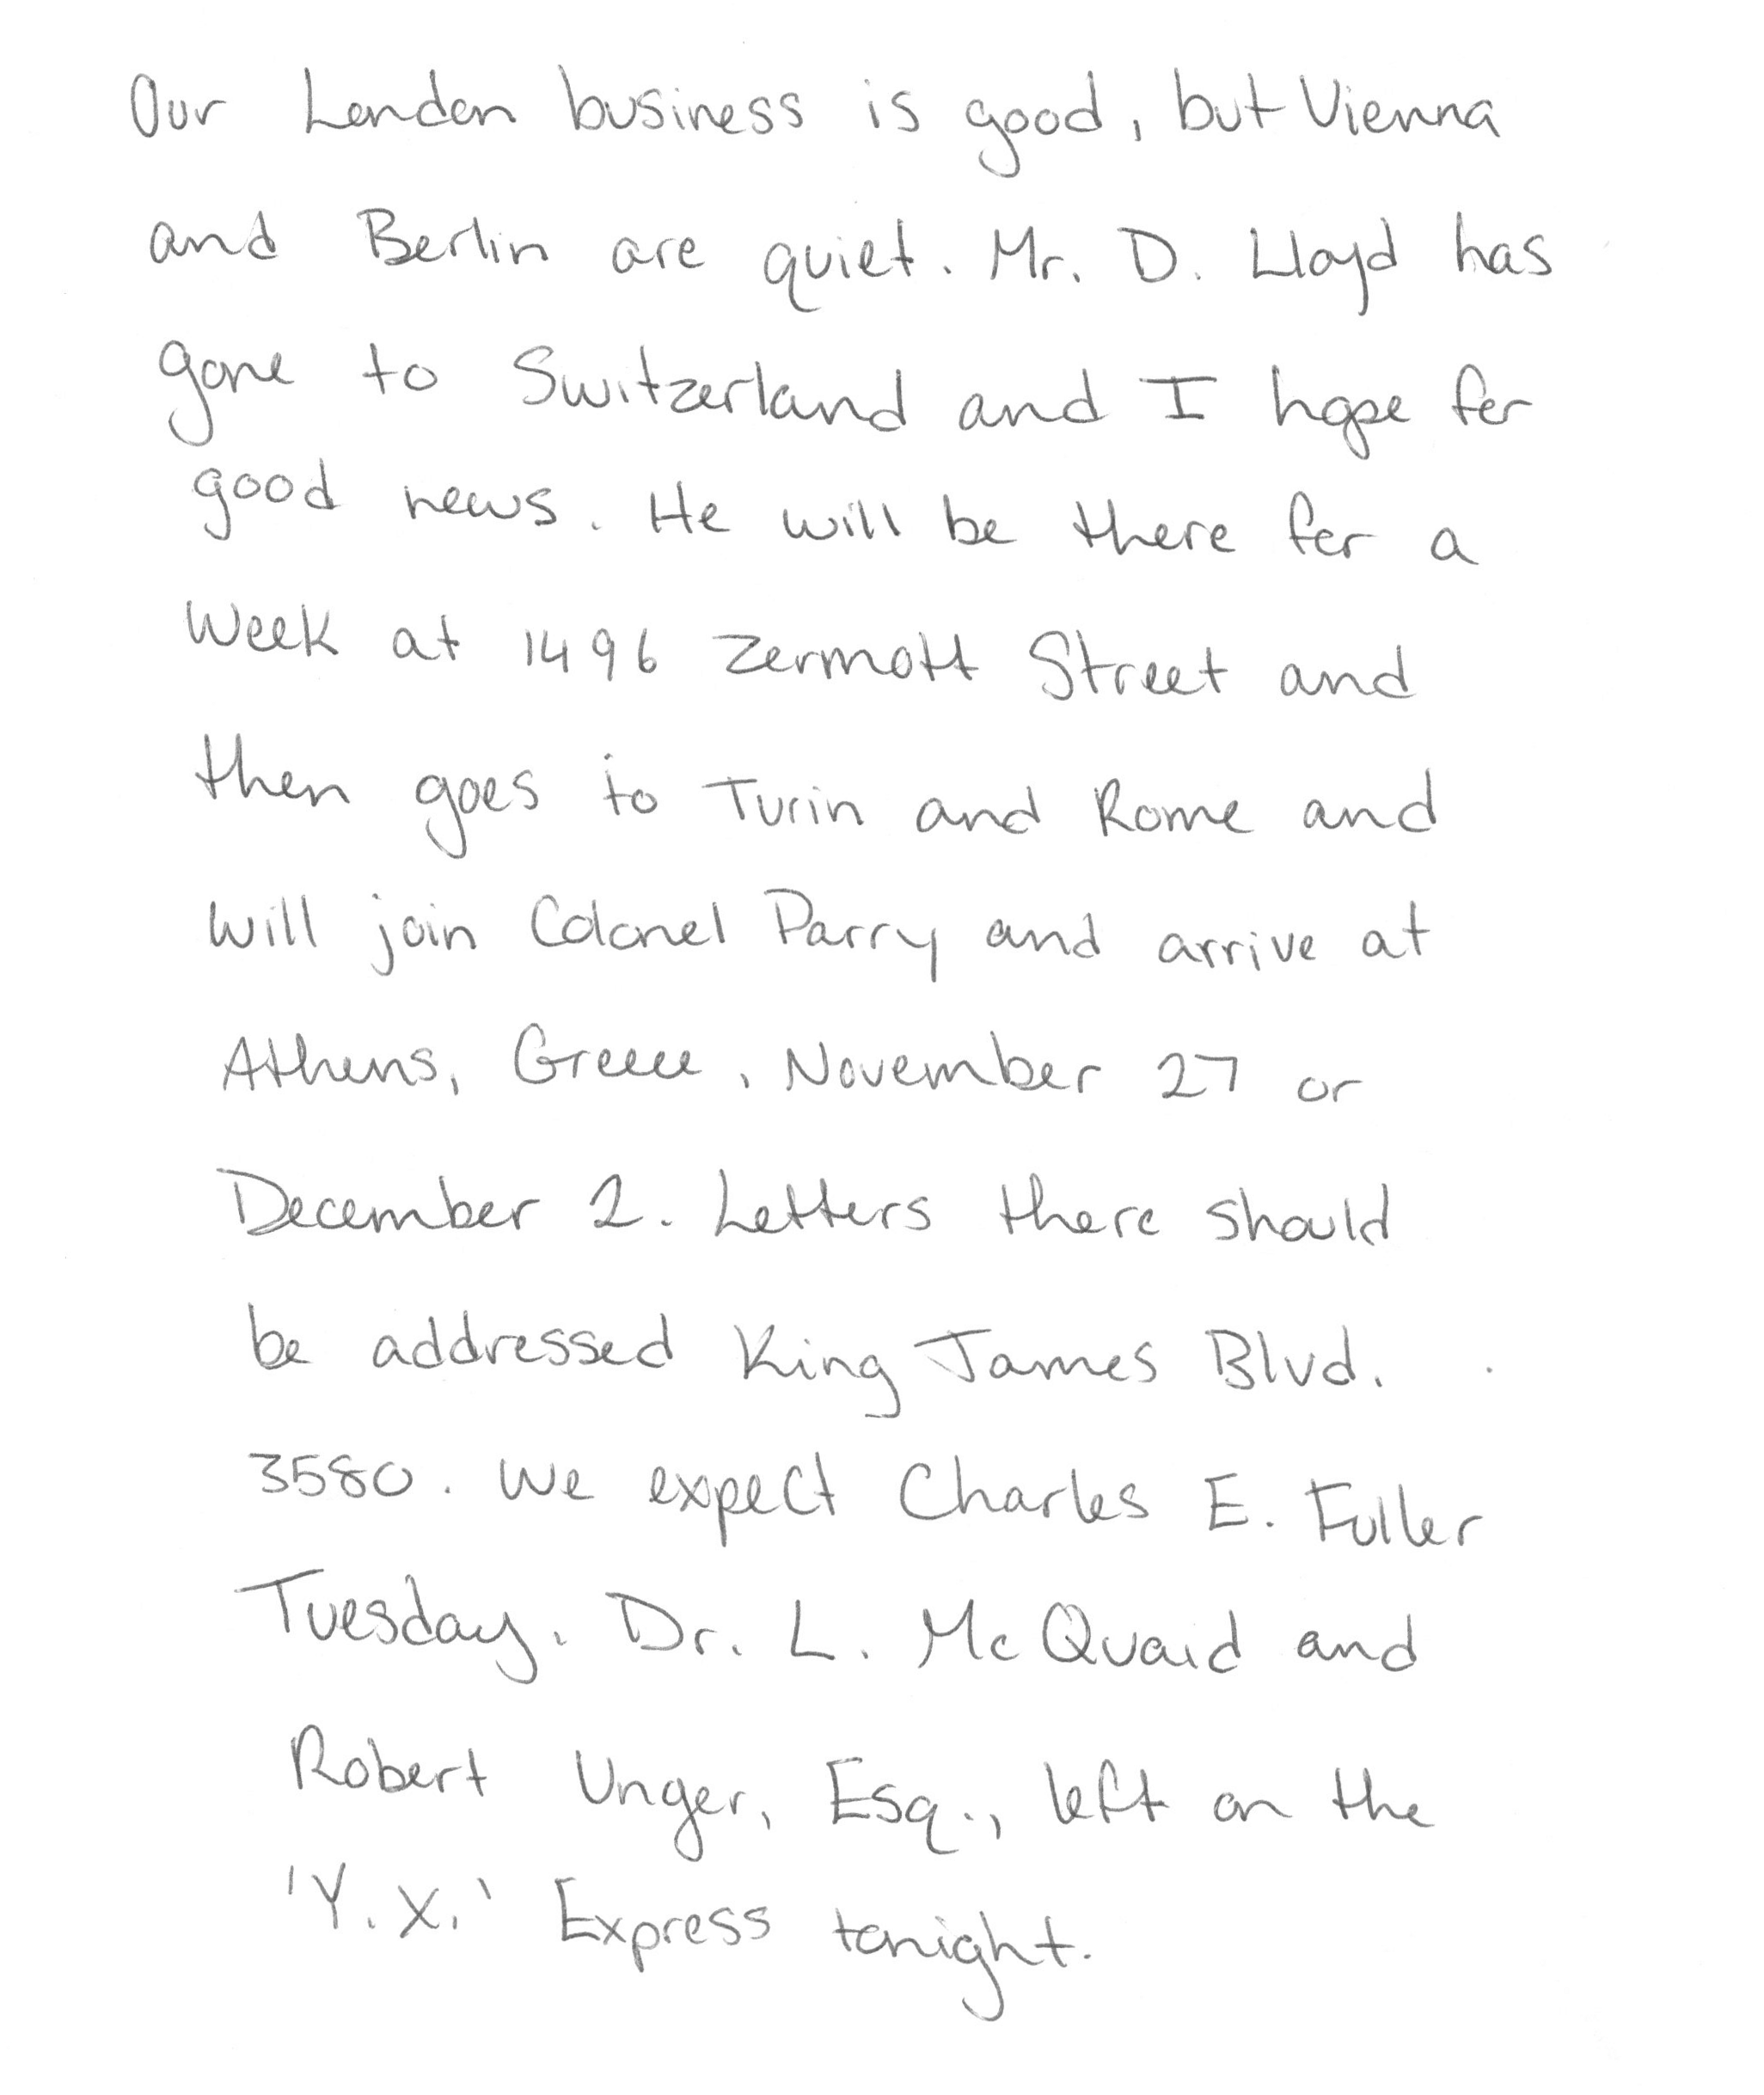 Our London business is good, but Vienna
and Berlin are quiet. Mr. D. Lloyd has
gone to Switzerland and I hope for
good news. He will be there for a
week at 1496 Zermott Street and
then goes to Turin and Rome and
will join Colonel Parry and arrive at
Athens, Greece, November 27 or
December 2. Letters there should
be addressed King James Blvd.
3580. We expect Charles E. Fuller
Tuesday. Dr. L. McQuaid and
Robert Unger, Esq., left on the
'Y.X.' Express tonight.